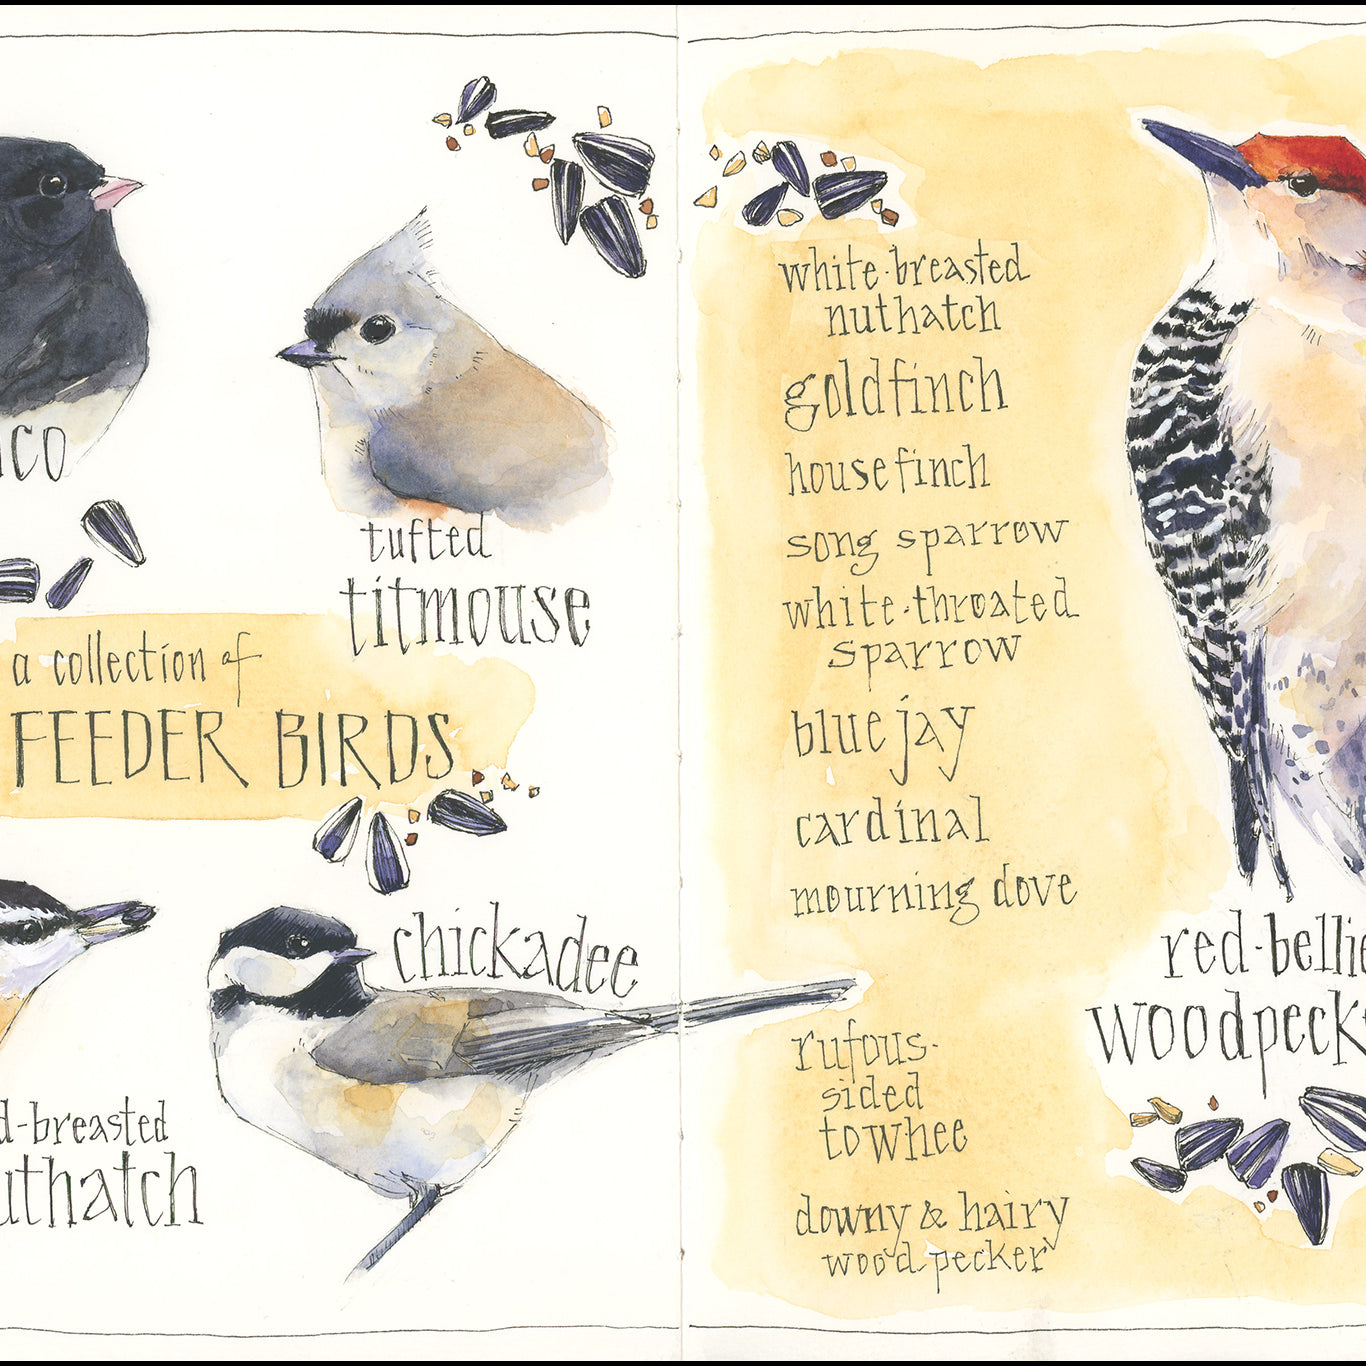 co
tufted
titmouse
a collection of
FEEDER BIRDS
chickadee
d-breasted
uthatch
white-breasted
nuthatch
goldfinch
house finch
song sparrow
white-throated
sparrow
blue jay
cardinal
mourning dove
rufous-
sided
towhee
downy & hairy
wood-pecker
red-bellie
woodpeck